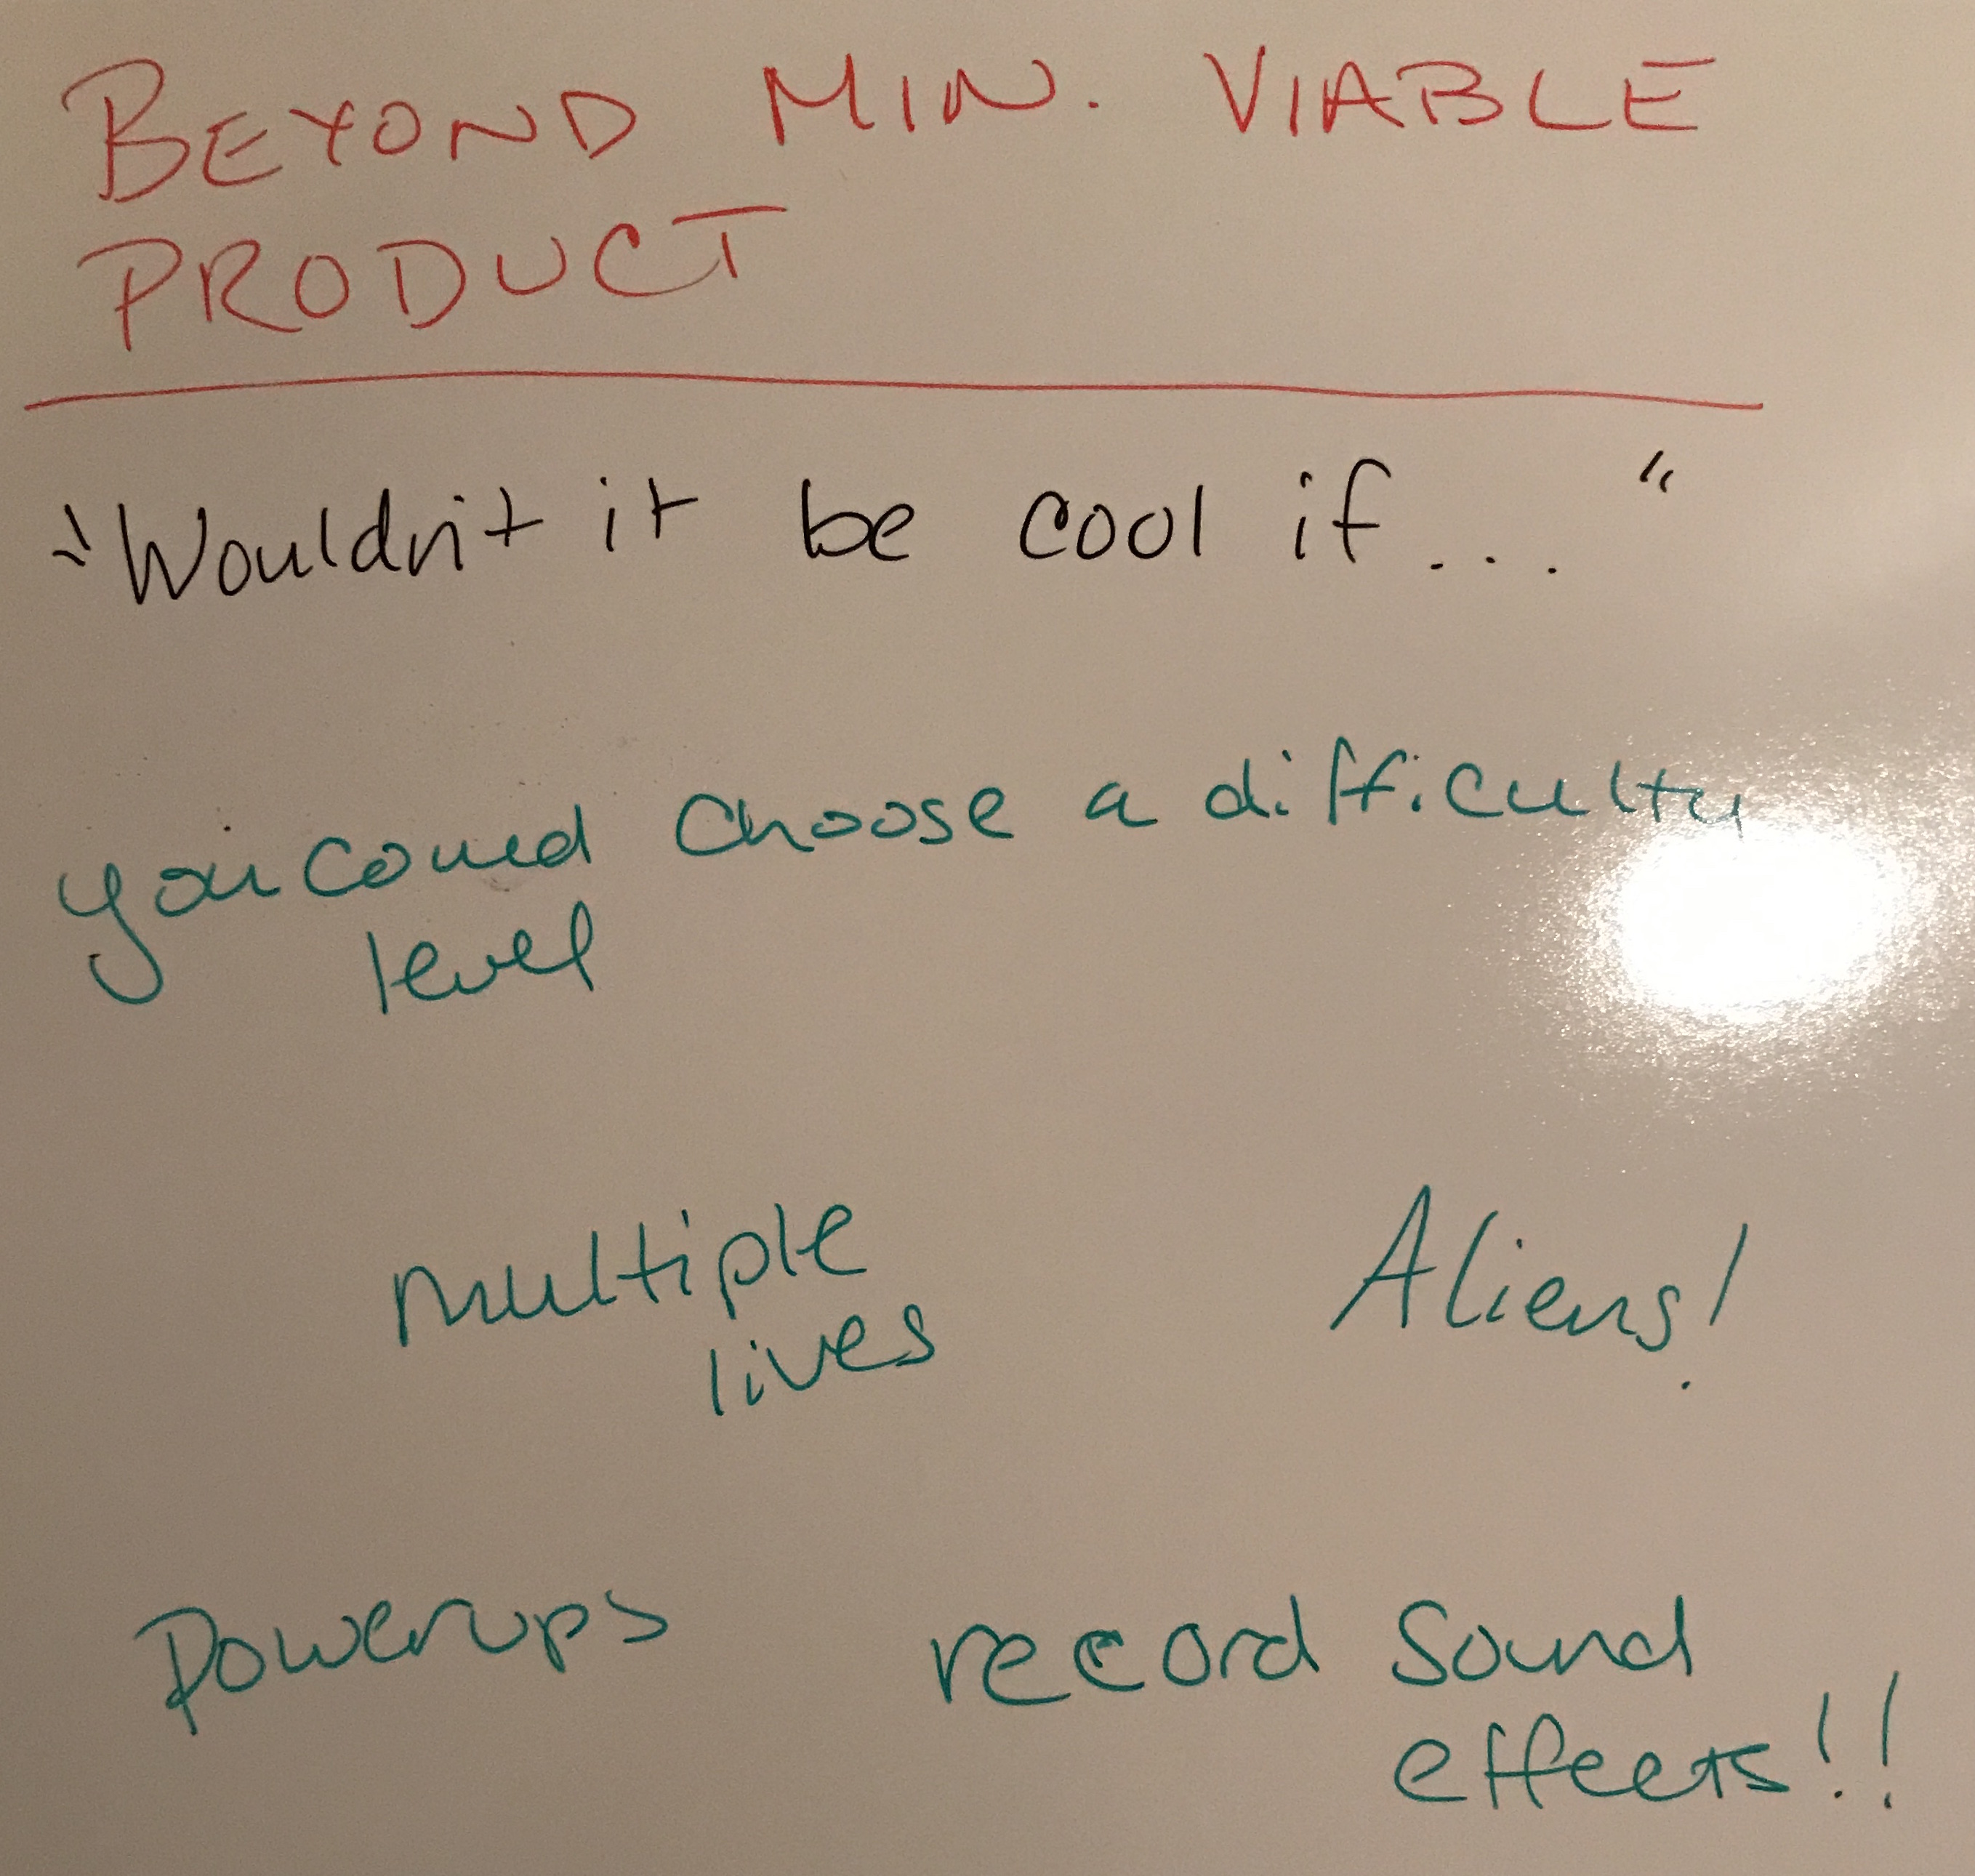 BEYOND MIN. VIABLE
PRODUCT
"Wouldn't it be cool if..."
you could choose a difficulty
level
multiple
lives
Aliens!
Powerups
record sound
effects!!